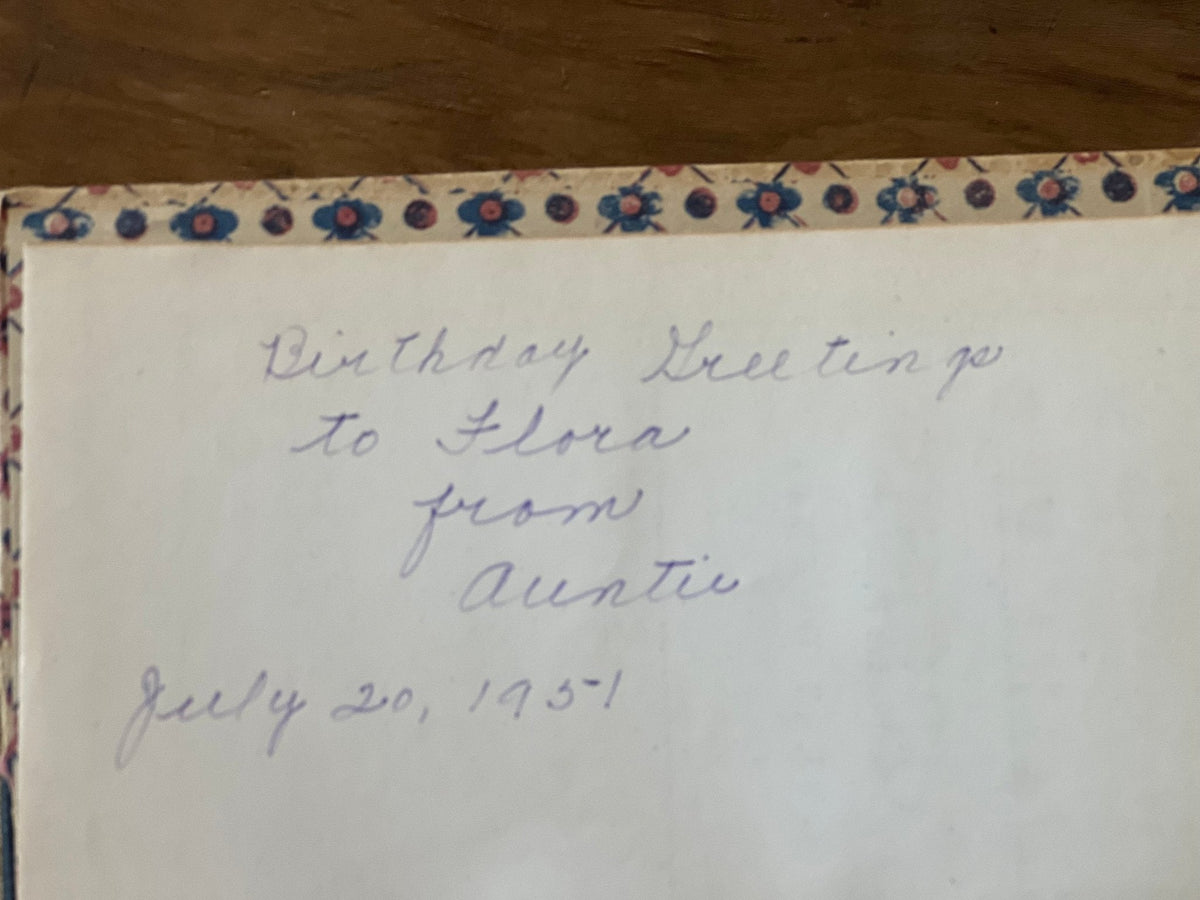 Birthday Greetings
to Flora
from
Auntie
July 20, 1951